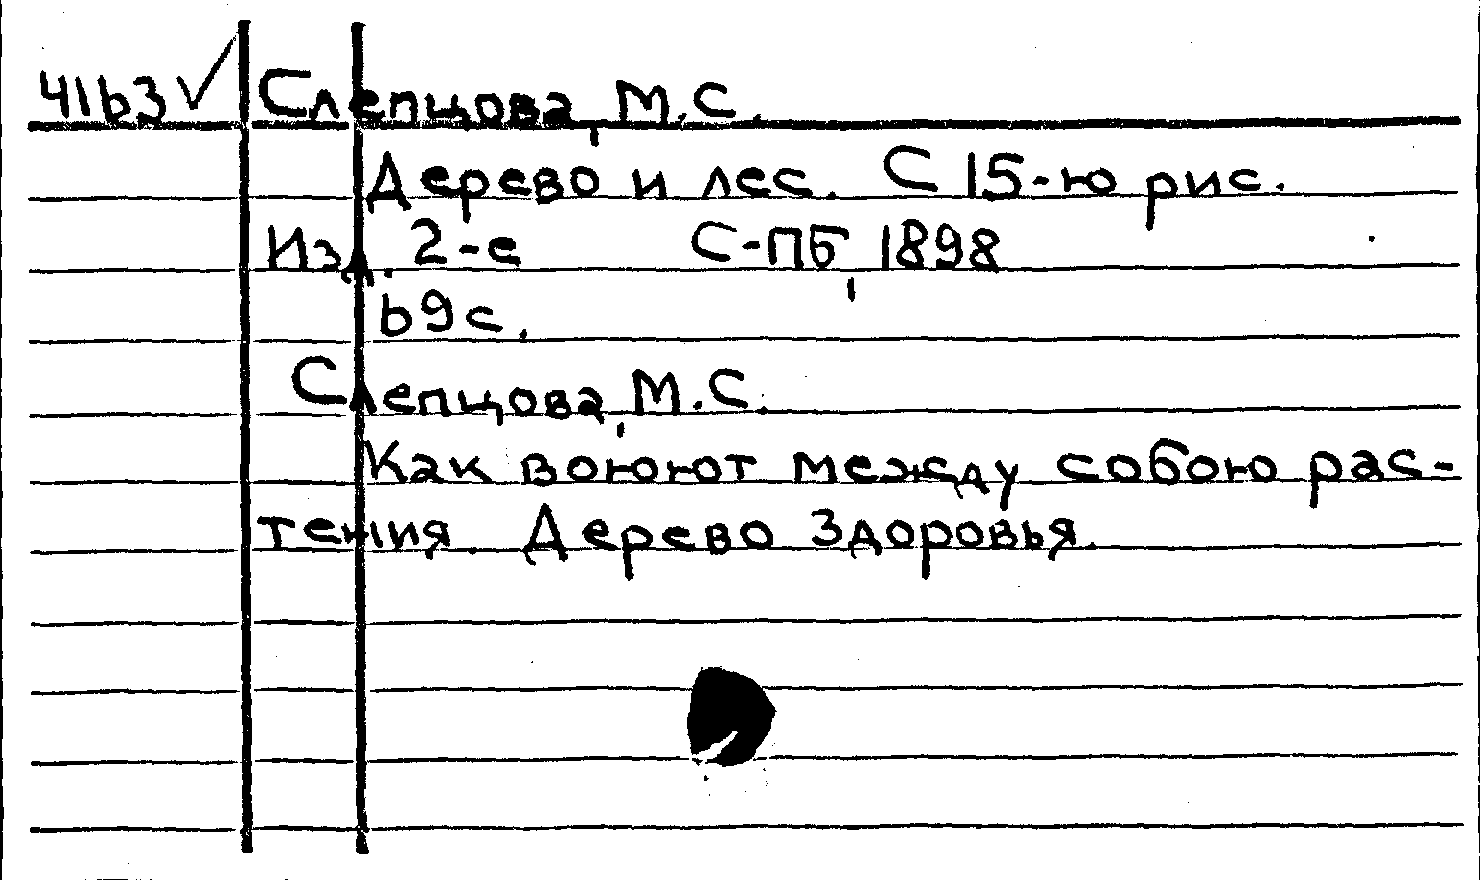 41b3 ✓ Слепцова, М.С.
Дерево и лес. С 15-ю рис.
Изд. 2-е С-ПБ, 1898
b9с.
Слепцова, М.С.
Как воюют между собою рас-
тения. Дерево здоровья.